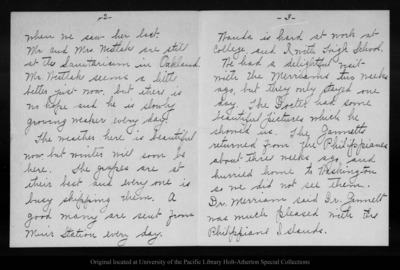 -2-
when we saw her last.
Mr and Mrs Mettah are still
at the Sanitarium in Oakland.
Mr Mettah seems a little
better just now, but there is
no hope and he is slowly
growing weaker every day.
The weather here is beautiful
now but winter will soon be
here. The grapes are at
their best and every one is
busy shipping them. A
good many are sent from
Muir Station every day.
-3-
Wanda is hard at work at
College, and I with high School.
We had a delightful visit
with the Merriams two weeks
ago, but they only stayed one
day. The Doctor had some
beautiful pictures which he
showed us. The Gannetts
returned from the Philippieanes
about three weeks ago and
hurried home to Washington
so we did not see them.
Dr. Merriam said Dr. Gannett
was much pleased with the
Philippiane Islands.
Original located at University of the Pacific Library Holt-Atherton Special Collections